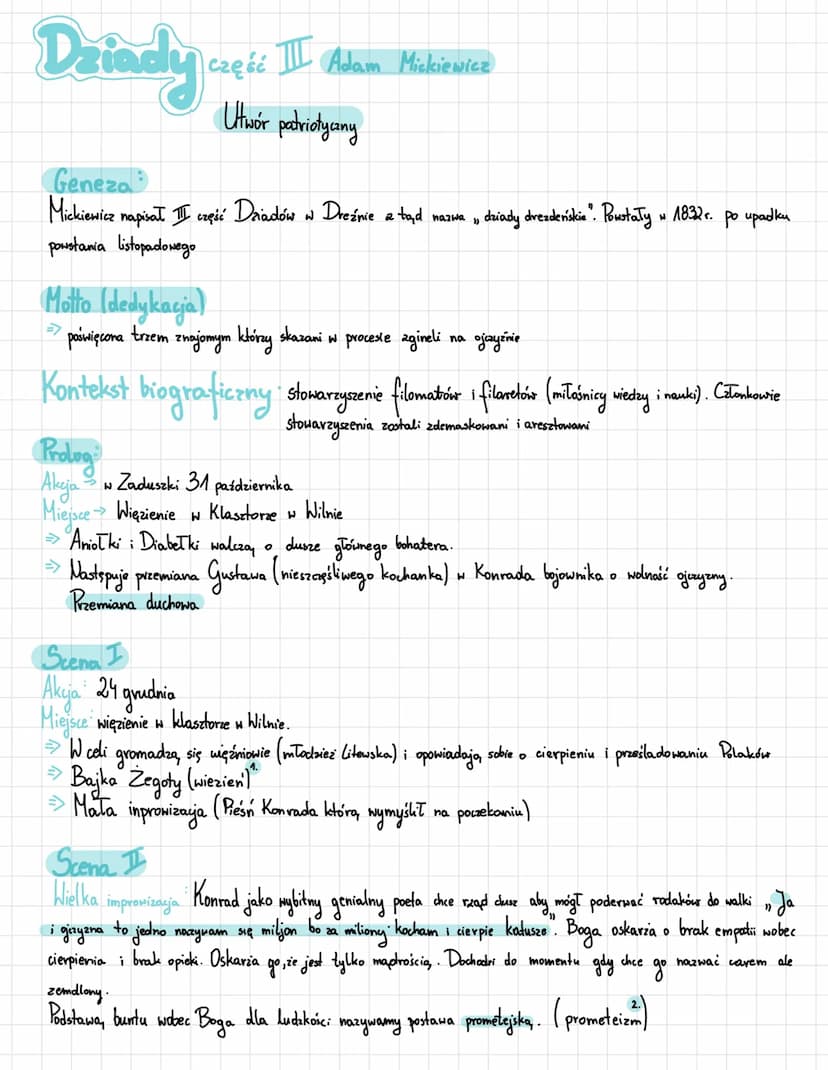 Dziady część III Adam Mickiewicz
Utwór patriotyczny
Geneza:
Mickiewicz napisał III część Dziadów w Dreźnie z tąd nazwa „dziady drezdeńskie". Powstały w 1832 r. po upadku
powstania listopadowego
Motto (dedykacja)
⇒ poświęcona trzem znajomym którzy skazani w procesie zgineli na ojczyźnie
Kontekst biograficzny: stowarzyszenie filomatów i filaretów (miłośnicy wiedzy i nauki). Członkowie
stowarzyszenia zostali zdemaskowani i aresztowani
Prolog:
Akcja → w Zaduszki 31 października
Miejsce → Więzienie w Klasztorze w Wilnie
⇒ Aniołki i Diabełki walczą o dusze głównego bohatera.
⇒ Następuje przemiana Gustawa (nieszczęśliwego kochanka) w Konrada bojownika o wolność ojczyzny.
Przemiana duchowa
Scena I
Akcja: 24 grudnia
Miejsce: więzienie w klasztorze w Wilnie.
⇒ W celi gromadzą się więźniowie (młodzież Litewska) i opowiadają sobie o cierpieniu i prześladowaniu Polaków
⇒ Bajka Żegoty (wiezień) 1.
⇒ Mała inprowizacja (Pieśń Konrada którą wymyślił na poczekaniu)
Scena II
Wielka improwizacja: Konrad jako wybitny genialny poeta chce rząd dusz aby mógł poderwać rodaków do walki „Ja
i ojczyzna to jedno nazywam się miljon bo za miliony kocham i cierpie katusze". Boga oskarża o brak empatii wobec
cierpienia i brak opieki. Oskarża go, że jest tylko mądrością. Dochodzi do momentu gdy chce go nazwać carem ale
zemdlony.
Podstawą buntu wobec Boga dla ludzkości nazywamy postawa prometejską. (prometeizm) 2.